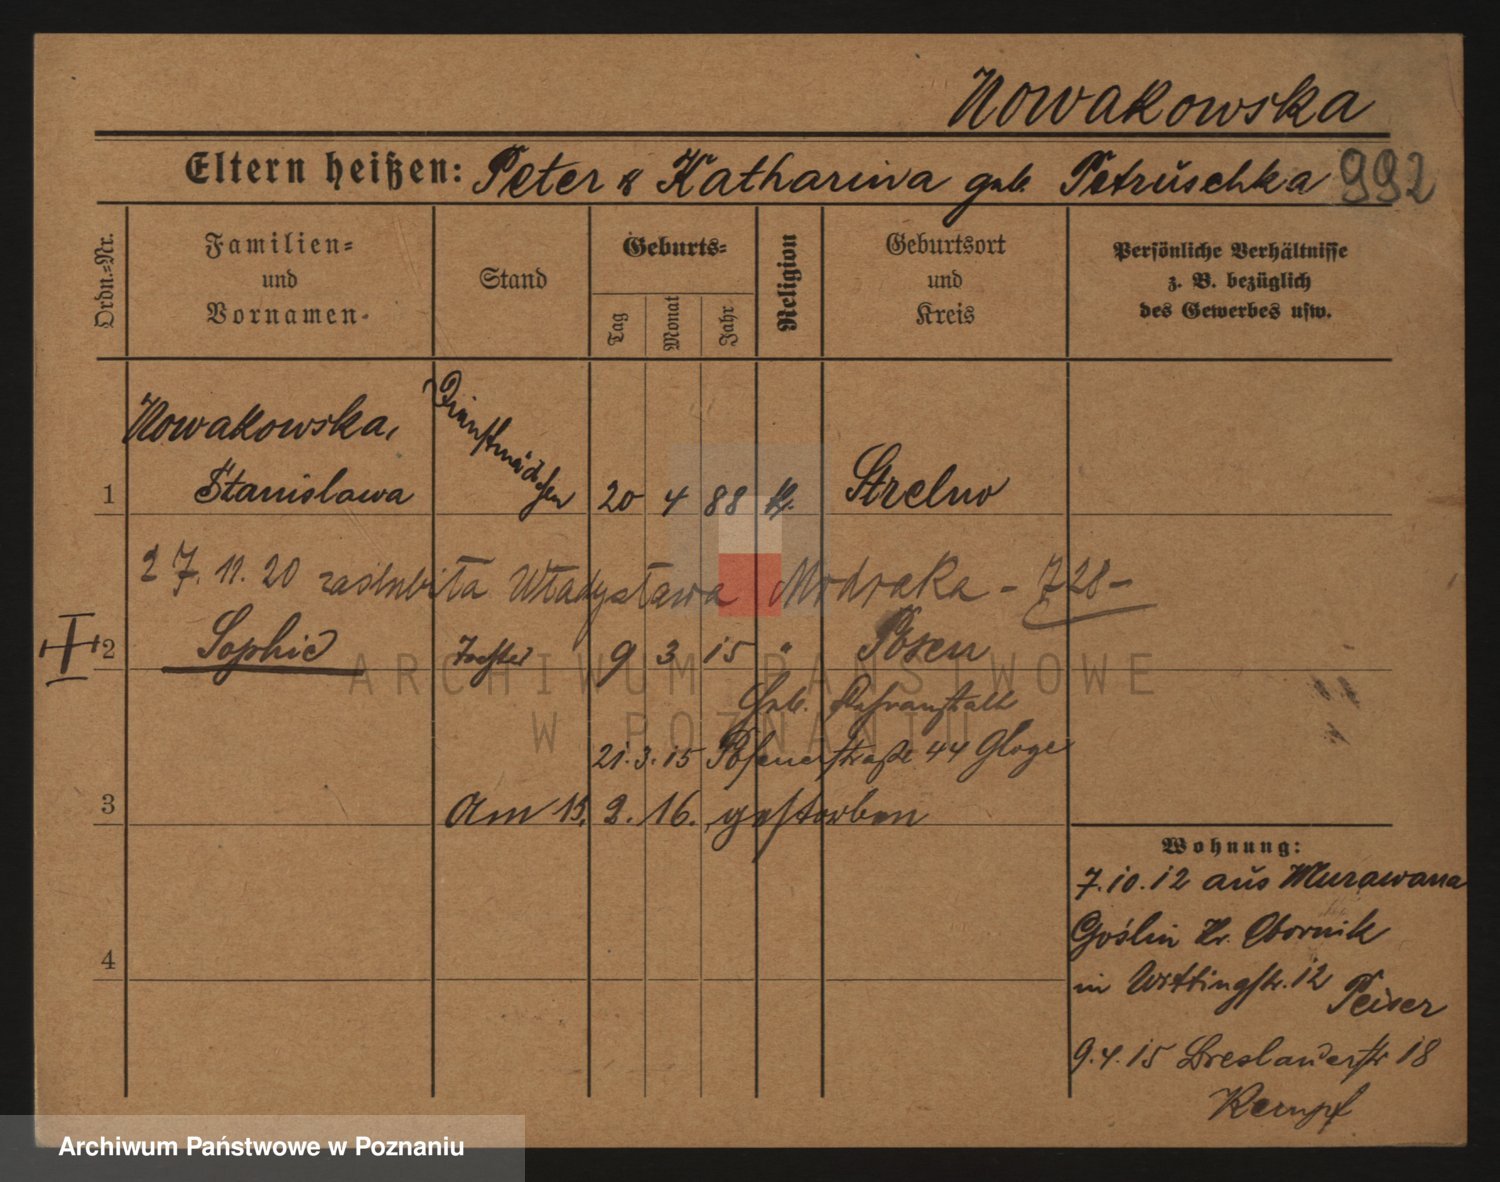 Nowakowska
Eltern heißen: Peter & Katharina geb. Petruschka 992
Ordn.=Nr.
Familien=
und
Vornamen.
Stand
Geburts=
Tag
Monat
Jahr
Religion
Geburtsort
und
Kreis
Persönliche Verhältnisse
z. B. bezüglich
des Gewerbes usw.
Nowakowska,
1 Stanislawa Dienstmädchen 20 4 88 K. Strelno
27.11.20 zaślubiła Władysława Modraka - 728 -
2 Sophie Tochter 9 3 15 " Posen
Geb.
21.3.15 Posenerstraße 44 Gloge
3 Am 15. 2. 16. gestorben
4
Wohnung:
7.10.12 aus Murawana
Goślin Kr. Obornik
in Wittingstr. 12 Peiser
9.4.15 Breslauerstr 18
Kempf
ARCHIWUM PAŃSTWOWE
W POZNANIU
Archiwum Państwowe w Poznaniu